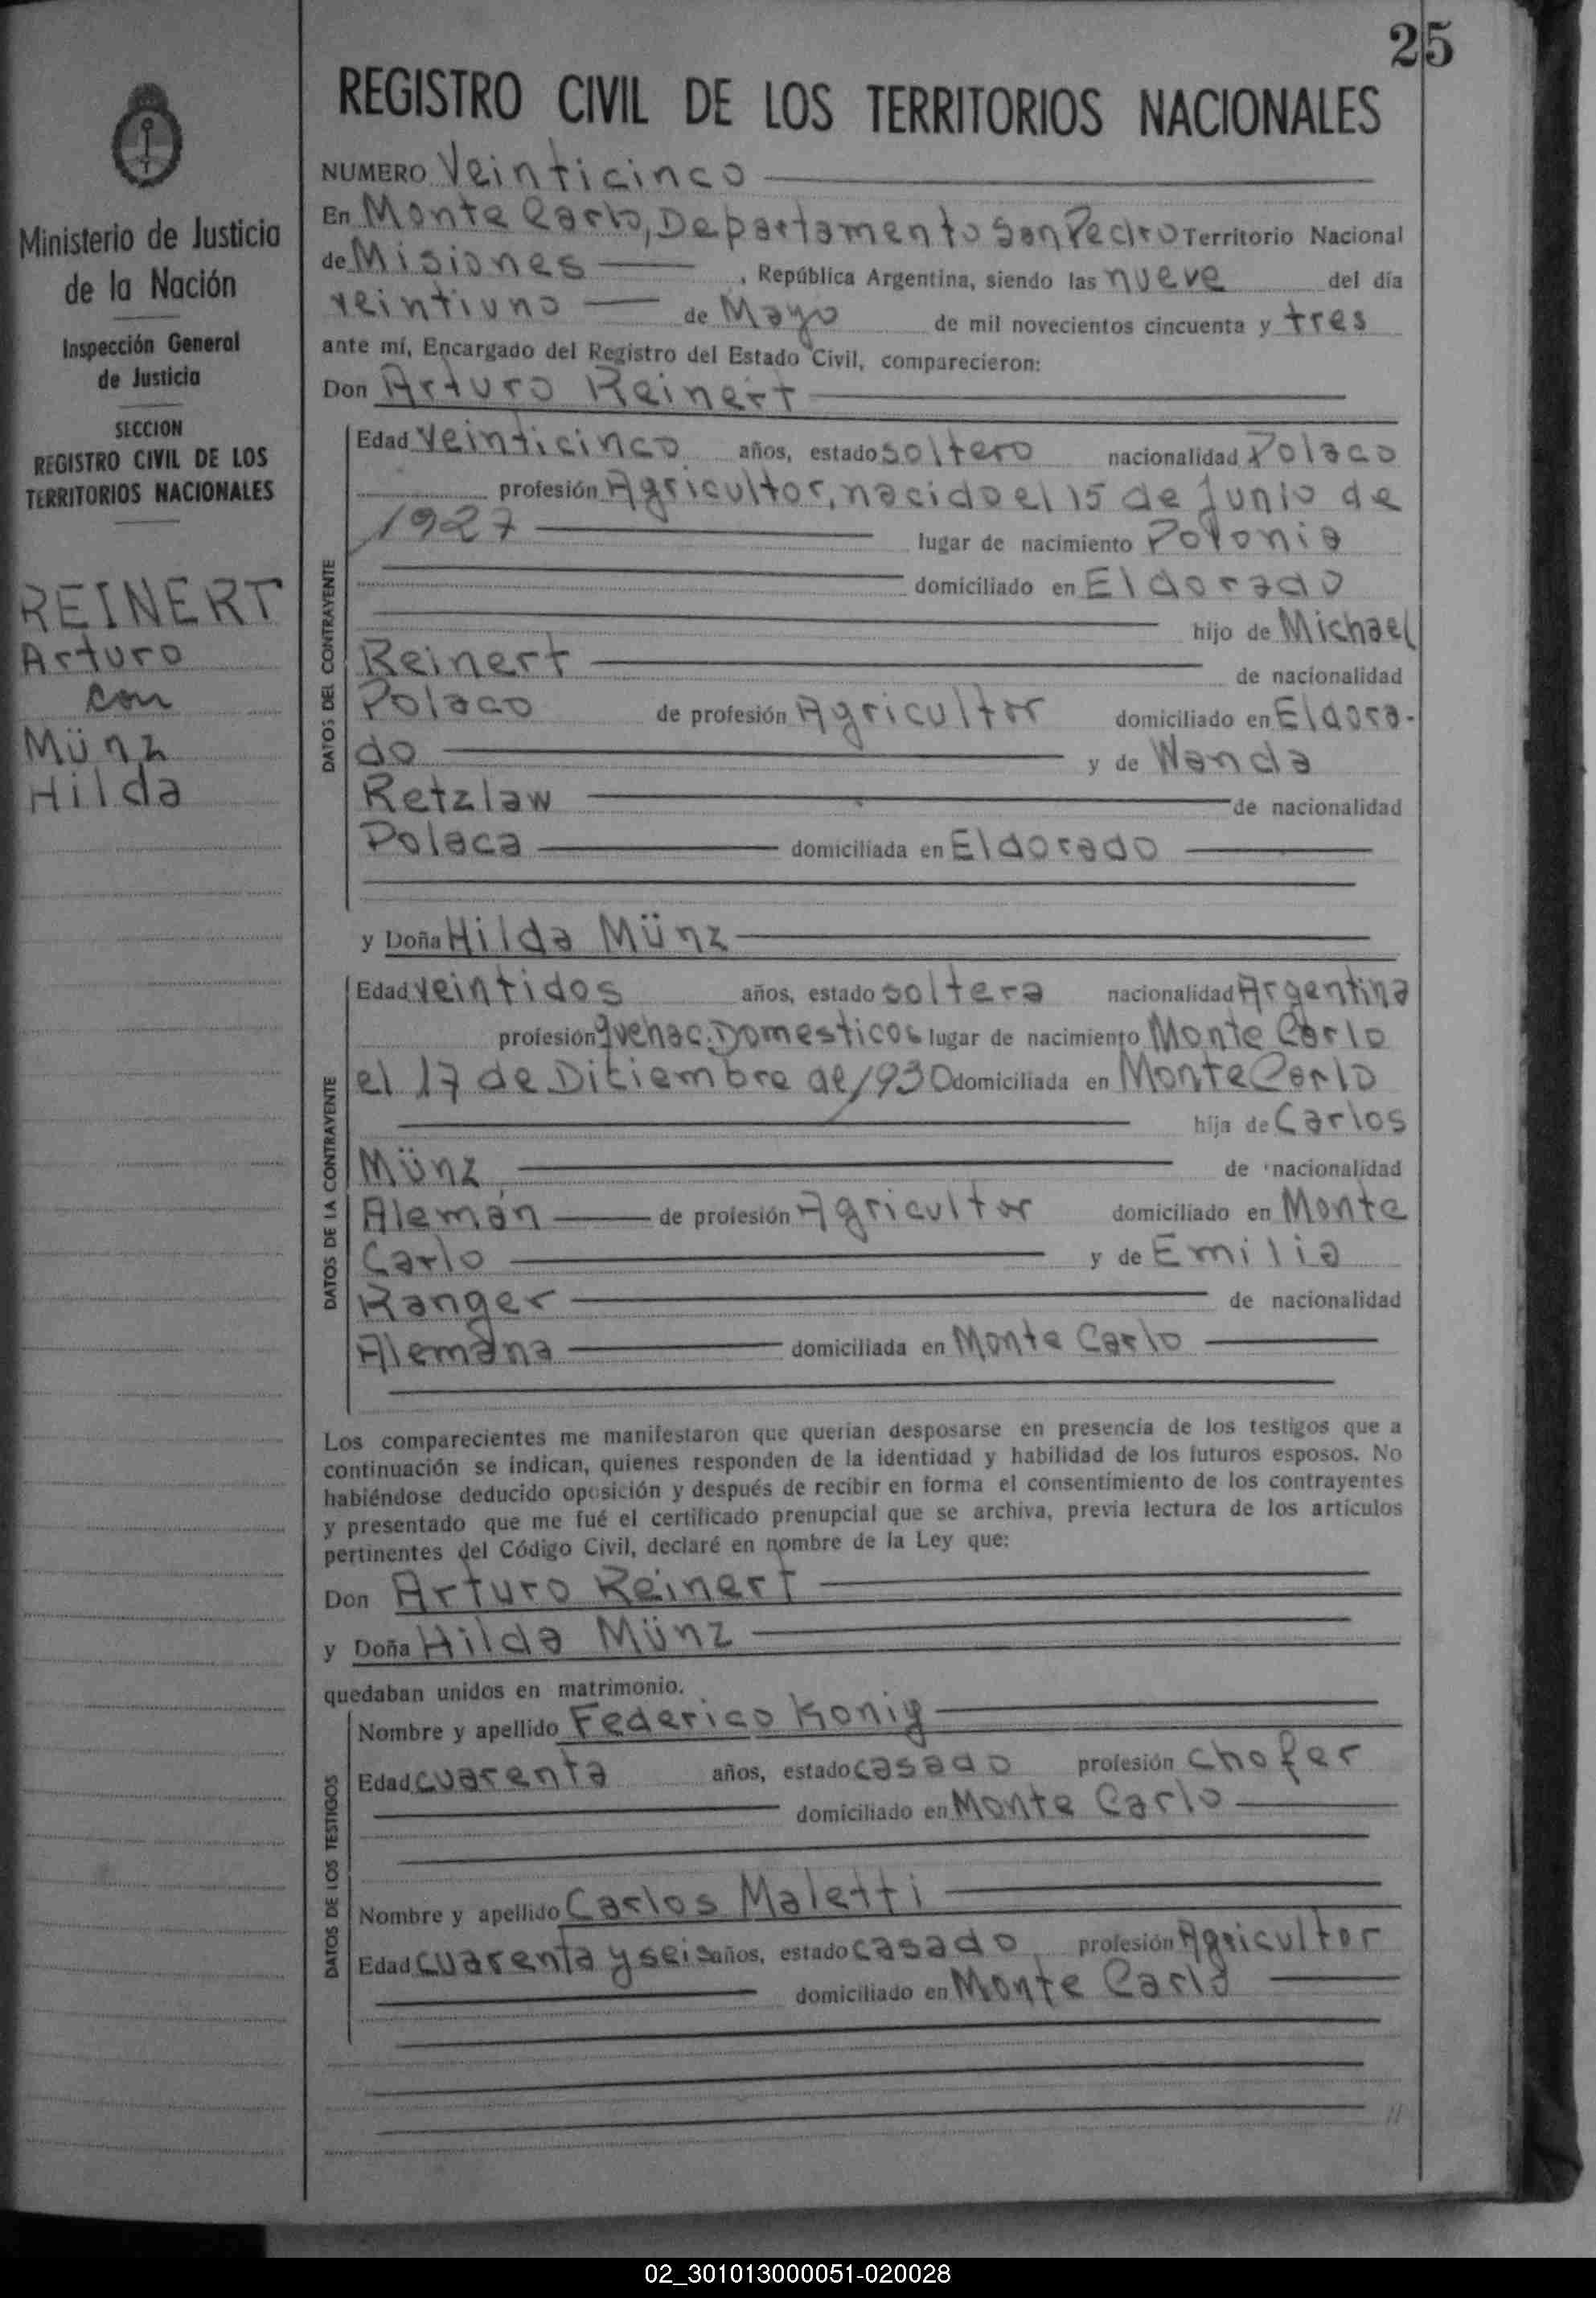 25
REGISTRO CIVIL DE LOS TERRITORIOS NACIONALES
Ministerio de Justicia
de la Nación
Inspección General
de Justicia
SECCION
REGISTRO CIVIL DE LOS
TERRITORIOS NACIONALES
REINERT
Arturo
con
Münz
Hilda
NUMERO Veinticinco
En Monte Carlo, Departamento San Pedro Territorio Nacional
de Misiones , República Argentina, siendo las nueve del día
veintiuno de Mayo de mil novecientos cincuenta y tres
ante mí, Encargado del Registro del Estado Civil, comparecieron:
Don Arturo Reinert
DATOS DEL CONTRAYENTE
Edad veinticinco años, estado soltero nacionalidad Polaco
profesión Agricultor, nacido el 15 de Junio de
1927 lugar de nacimiento Polonia
domiciliado en Eldorado
hijo de Michael
Reinert de nacionalidad
Polaco de profesión Agricultor domiciliado en Eldora-
do y de Wanda
Retzlaw de nacionalidad
Polaca domiciliada en Eldorado
y Doña Hilda Münz
DATOS DE LA CONTRAYENTE
Edad veintidos años, estado soltera nacionalidad Argentina
profesión Quehac. Domesticos lugar de nacimiento Monte Carlo
el 17 de Diciembre de 1930 domiciliada en Monte Carlo
hija de Carlos
Münz de nacionalidad
Alemán de profesión Agricultor domiciliado en Monte
Carlo y de Emilia
Ranger de nacionalidad
Alemana domiciliada en Monte Carlo
Los comparecientes me manifestaron que querían desposarse en presencia de los testigos que a
continuación se indican, quienes responden de la identidad y habilidad de los futuros esposos. No
habiéndose deducido oposición y después de recibir en forma el consentimiento de los contrayentes
y presentado que me fué el certificado prenupcial que se archiva, previa lectura de los artículos
pertinentes del Código Civil, declaré en nombre de la Ley que:
Don Arturo Reinert
y Doña Hilda Münz
quedaban unidos en matrimonio.
DATOS DE LOS TESTIGOS
Nombre y apellido Federico Konig
Edad cuarenta años, estado casado profesión chofer
domiciliado en Monte Carlo
Nombre y apellido Carlos Maletti
Edad cuarenta y seis años, estado casado profesión Agricultor
domiciliado en Monte Carlo
02_301013000051-020028